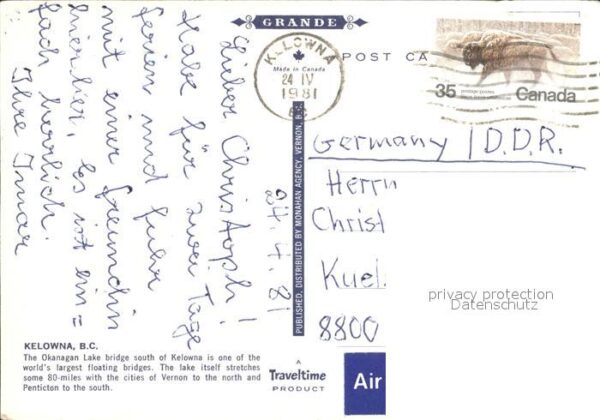 GRANDE
POST CA
KELOWNA
Made in Canada
24 IV
1981
B.C.
35
postage postes
Canada
24.4.81
Lieber Christoph!
Habe für zwei Tage
ferien und fuhr
mit einer freundin
hierher, Es ist ein=
fach herrlich.
Ihre
Germany / D.D.R.
Herrn
Christ
Kuel.
8800
privacy protection
Datenschutz
PUBLISHED, DISTRIBUTED BY MONAHAN AGENCY, VERNON, B.C.
KELOWNA, B.C.
The Okanagan Lake bridge south of Kelowna is one of the
world's largest floating bridges. The lake itself stretches
some 80-miles with the cities of Vernon to the north and
Penticton to the south.
A
Traveltime
PRODUCT
Air